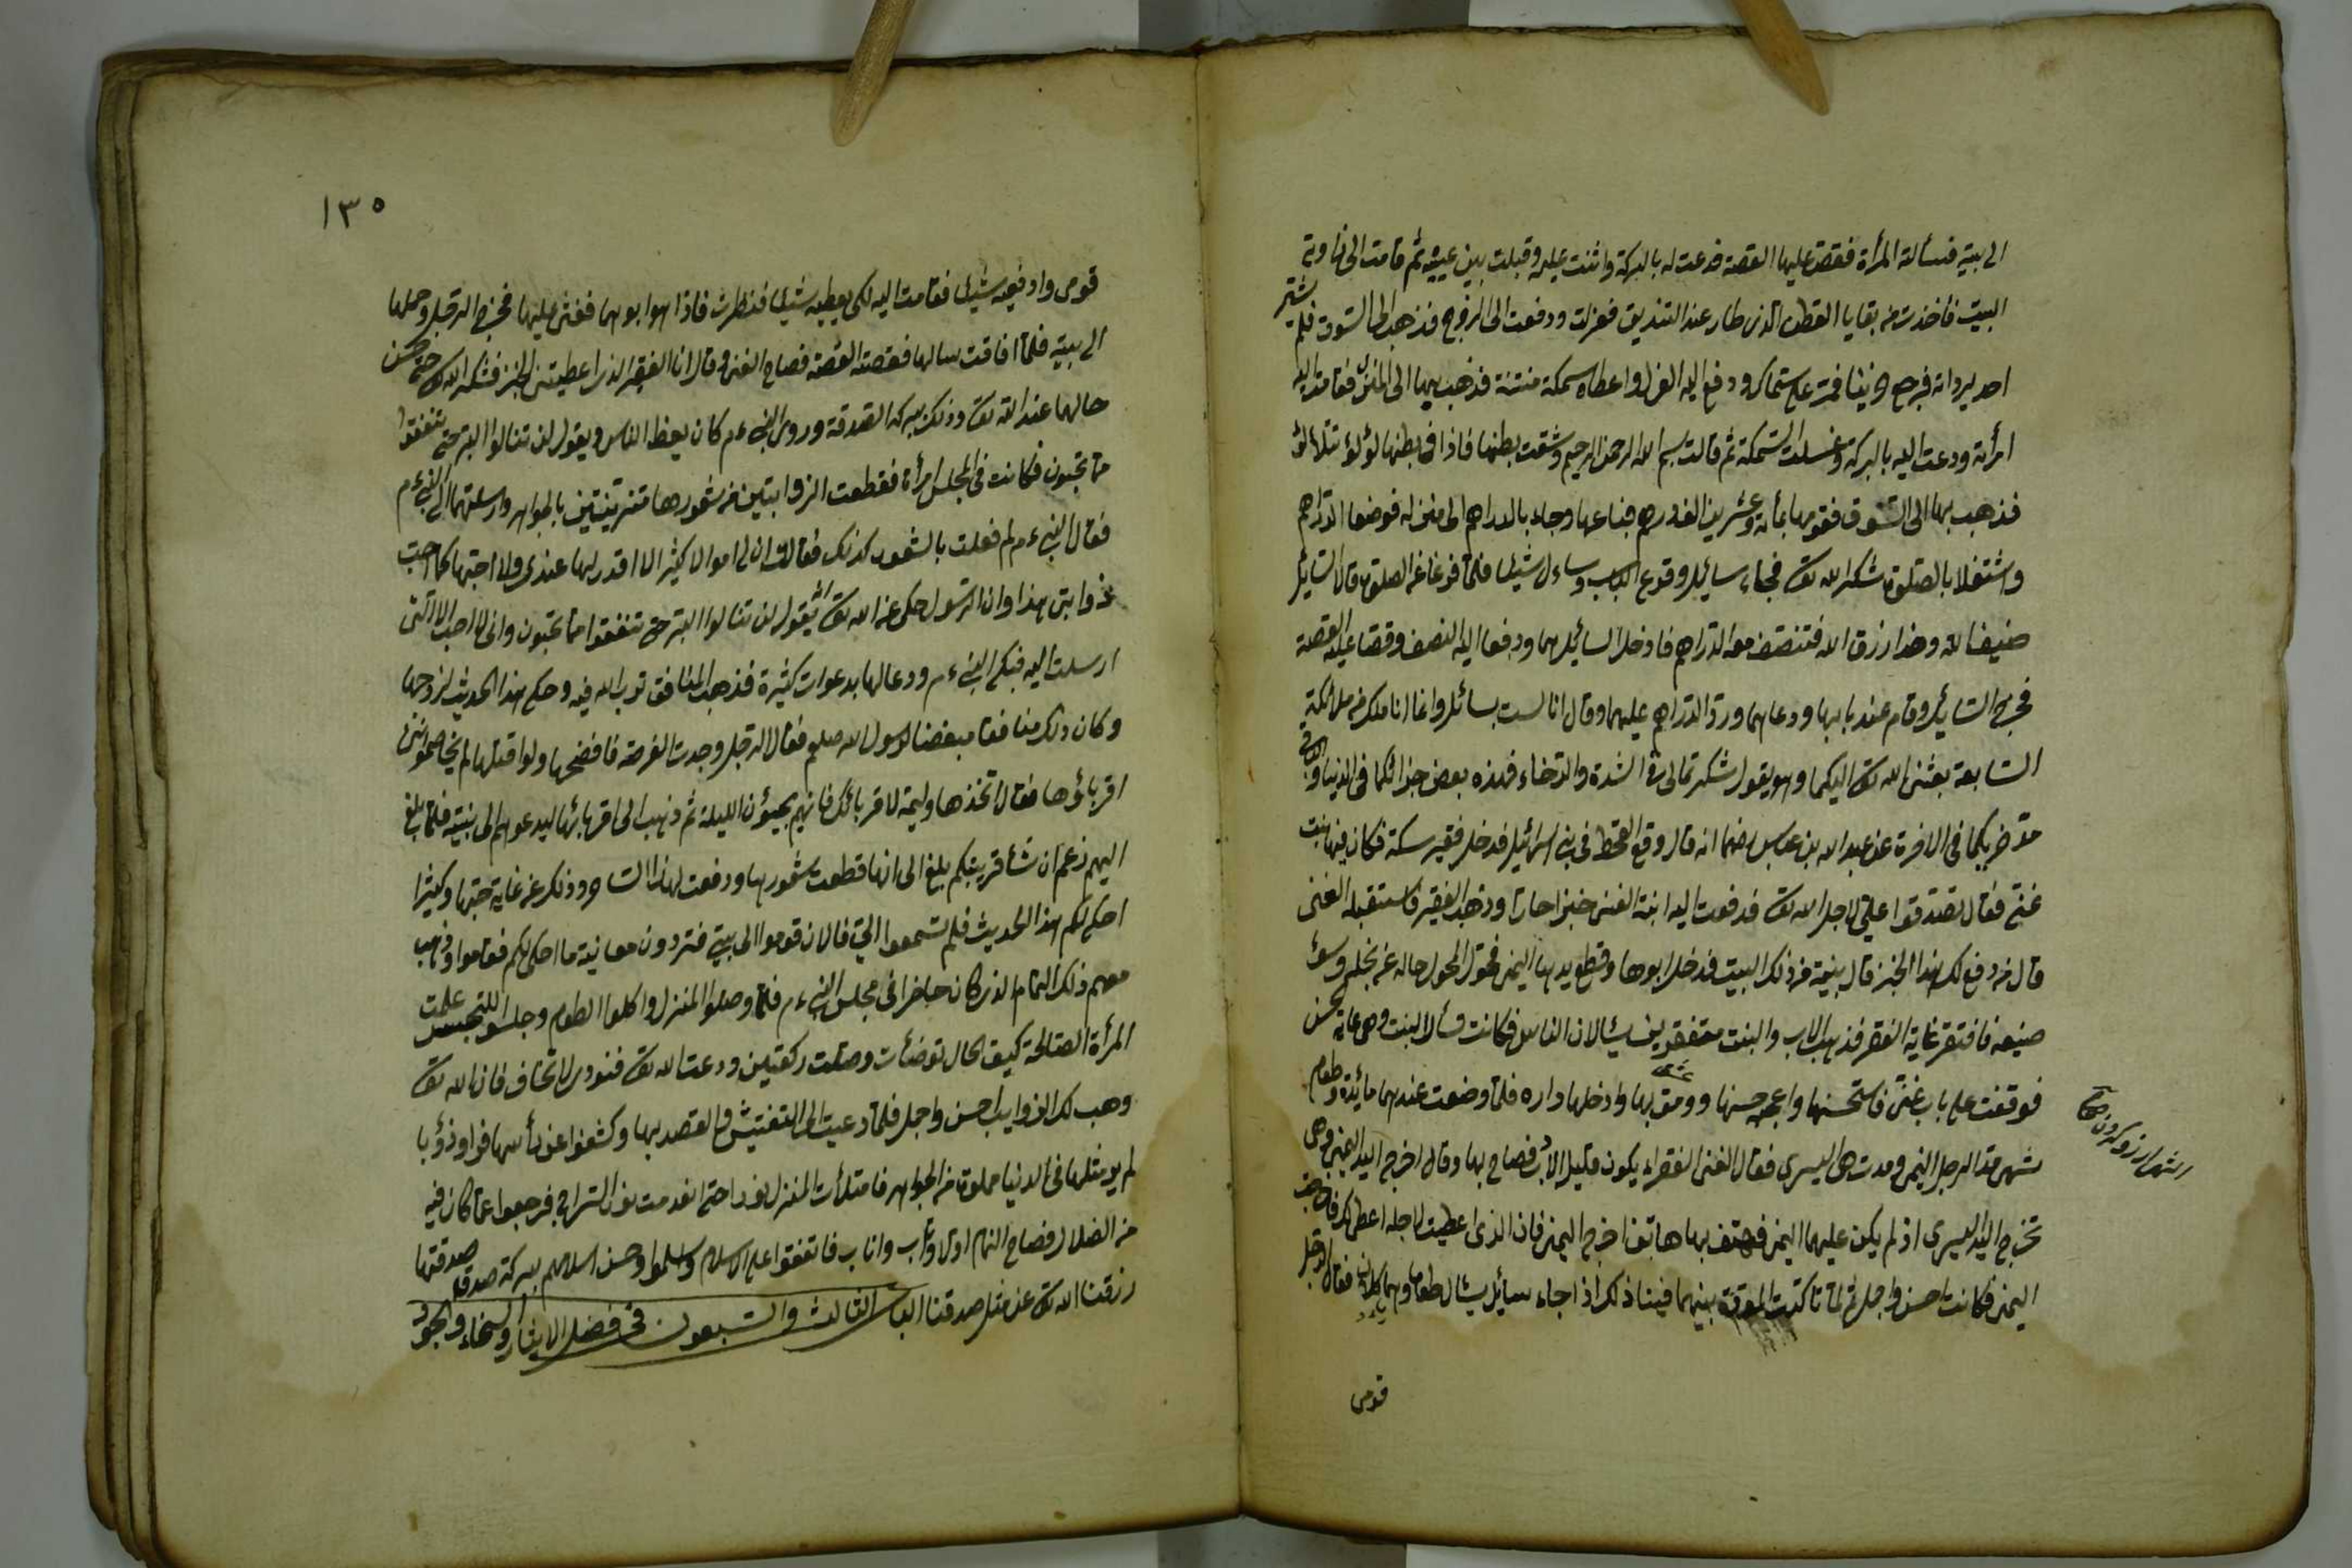 الى بيته فسألته المرأة فقص عليها القصة فدعت له بالبركة واثنت عليه وقبلت بين عينيه ثم قامت الى زاوية
البيت فاخذت من بقايا القطن الذى طار عند التنديف فغزلت ودفعت الى الزوج فذهب الى السوق فلم يشتر
احد بردائه فرجع حزينا فمر على سماك ودفع اليه الغزل واعطاه سمكة منتنة فذهب بها الى المنزل فقامت اليه
امرأته ودعت اليه بالبركة وغسلت السمكة ثم قالت بسم الله الرحمن الرحيم وشقت بطنها فاذا فى بطنها لؤلؤ يتلألؤ
فذهب بها الى السوق فقومها بمأة وعشرين الف درهم فباعها وجاء بالدراهم الى منزله فوضعا الدراهم
واشتغلا بالصلوة شكرا لله تع فجاء سائل وقرع الباب وسأل شيئا فلما فرغا عن الصلوة قالا لسائل
ضيفا لله وهذا رزق الله فتنصف معه الدراهم فادخلا السائل بهما ودفعا اليه النصف وقصا عليه القصة
فخرج السائل وقام عند بابها ودعا لهما ورد الدراهم عليهما وقال انا لست بسائل وانما انا ملك من ملائكة
السابعة بعثنى الله تع اليكما وهو يقول شكرتمانى فى الشدة والرخاء فهذه بعض جزائكما فى الدنيا والباقى
فى الاخرة عن عبد الله بن عباس رضهما انه قال وقع القحط فى بنى اسرائيل فدخل فقير سكة فكان فيها بنت
غنى فقال تصدقوا على لاجل الله تع فدفعت اليه ابنة الغنى خبزا حارا وذهب الفقير فاستقبله الغنى
قال من دفع لك هذا الخبز قال بنية من ذلك البيت فدخل ابوها وقطع يدها اليمنى فحول المحول حاله عن بخله وسوء
صنيعه فافتقر غاية الفقر فذهب الاب والبنت متفقرين يسئالان الناس فكانت تسأل البنت وهى غاية الحسن
فوقفت على باب غنى فاستحسنها واعجبه حسنها وومق بها وادخلها داره فلما وضعت عندهما مائدة وطعام
الرجل اليمنى ومدت هى اليسرى فقال الغنى الفقراء يكون قليل الادب فصاح بها وقال اخرج اليد اليمنى وهى
تخرج اليد اليسرى اذ لم يكن عليها اليمنى فهتف بها هاتف اخرج اليمنى فان الذى اعطيت لاجله اعطى لك
اليمنى فكانت احسن واجمل ثم لما تأكدت المودة بينهما فبينا ذلك اذا جاء سائل يسئال طعاما وهما يأكلان فقال الرجل
قومى
١٣٥
قومى وادفعيه شيئا فقامت اليه لكى يعطيه شيئا فنظرت فاذا هو ابوها فغشى عليها فخرج الرجل وحملها
الى بيته فلما افاقت سالها فقصته القصة فصاح الغنى وقال انا الفقير الذى اعطيتنى الخبز فشكر الله تع حتى حسن
حالهما عند الله تع وذلك ببركة الصدقة وروى النبى عم كان يعظ الناس ويقول لن تنالوا البر حتى تنفقوا
مما تحبون فكانت فى المجلس امرأة فقطعت الزوابتين من شعورها متزينتين بالجواهر وارسلتهما الى النبى عم
فقال النبى عم لم فعلت بالشعور كذلك فقالت ان لى اموالا كثيرا لا اقدر لها عندى ولا احبها كما احب
ذوابتى هذا وان الرسول حكى عن الله تع انه يقول لن تنالوا البر حتى تنفقوا مما تحبون وانى لا احب الا التى
ارسلت اليه فبكى النبى عم ودعا لها بدعوات كثيرة فذهب المنافق توب الله فيه وحكى هذا الحديث لزوجها
وكان ذلك منافقا مبغضا لرسول الله صلعم فقال الرجل وجدت الفرصة فافضحها ولو اقتلها لم يخاصموننى
اقرباؤها فقال اتخذها وليمة لاقربائك فانهم يجيؤن الليلة ثم ذهب الى اقربائها ليدعوهم الى بيته فلما بلغ
اليهم زعم ان شأ قريبتكم بلغ الى انها قطعت شعورها ودفعت لهذا الساحر وذلك من غاية حبها وكثيرا
احكى لكم هذا الحديث فلم تسمعوا الى فالان قوموا الى بيتى فتردون معاينة ما احكى لكم فقاموا وذهب
معهم ذلك النمام الذى كان حاضرا فى مجلس النبى عم فلما وصلوا المنزل واكلوا الطعام وجلسوا للتجسس علمت
المرأة الصالحة كيف الحال توضأت وصلت ركعتين ودعت الله تع فنودى لا تخاف فان الله تع
وهب لك الزوايب احسن واجمل فلما دعيت الى التفتيش والقصد بها وكشفوا عن رأسها فراوا ذؤبا
لم ير مثلها فى الدنيا مملوة من الجواهر فامتلأت المنزل نورا حتى انعدمت نور السراج فرجعوا عما كان فيه
من الضلال فصاح النمام اولا وتاب واناب فاتفقوا على الاسلام واسلموا وحسن اسلامهم ببركة صدقتها
رزقنا الله تع عن مثل صدقتنا الباب الثالث والسبعون فى فضل الايثار والسخاء والجود